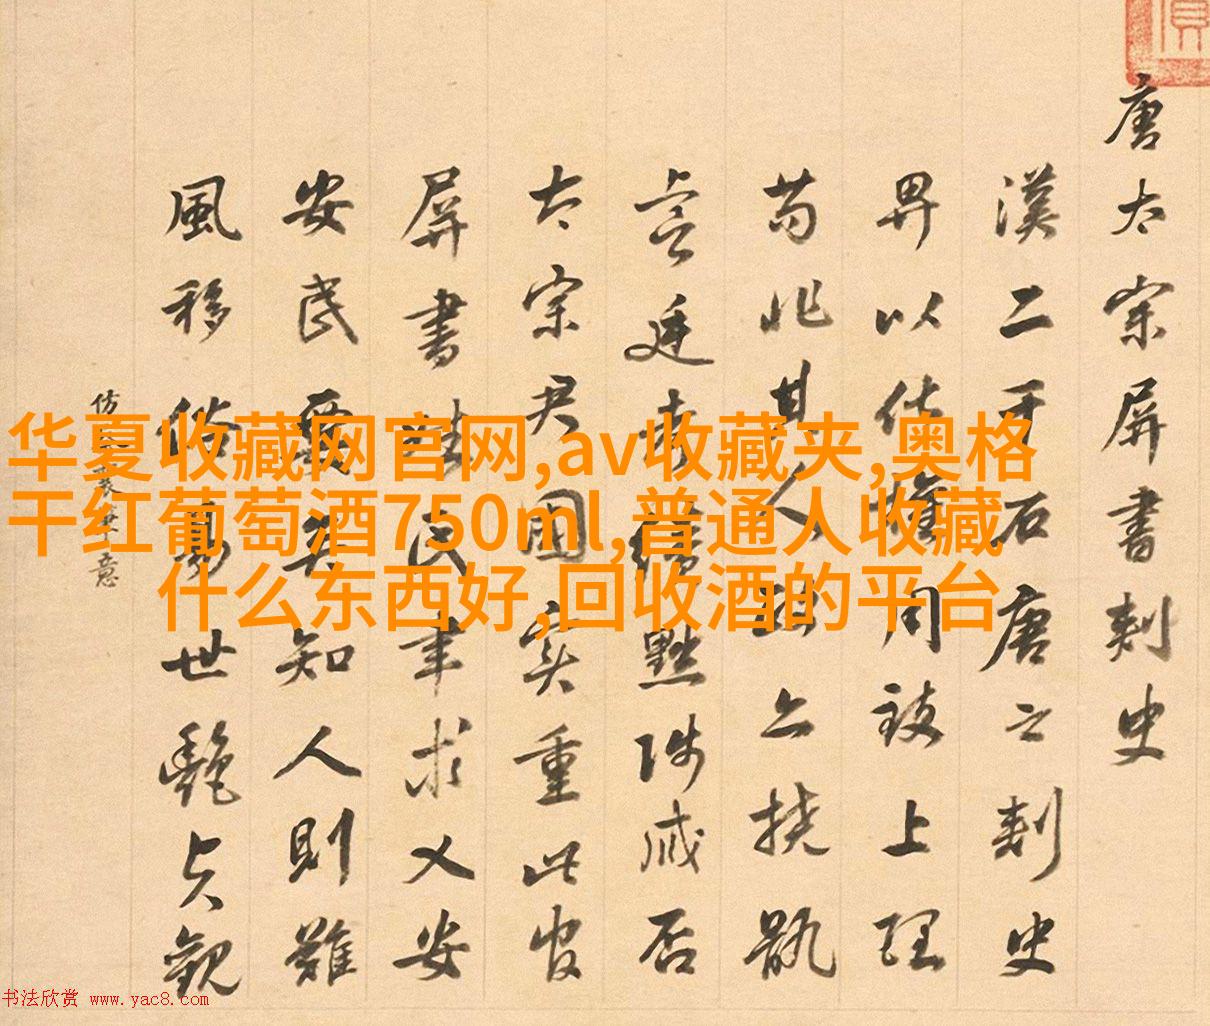 华夏收藏网官网,av收藏夹,奥格
干红葡萄酒750ml,普通人收藏
什么东西好,回收酒的平台
唐太宗屏書刺史
漢二千石唐之刺史
畀以上理
苟非其人
黜陟臧否
太宗君國實重此官
屏書姓氏聿求乂安
安民知人則難
風移俗易世艷貞觀
仿意
书法欣赏 www.yac8.com